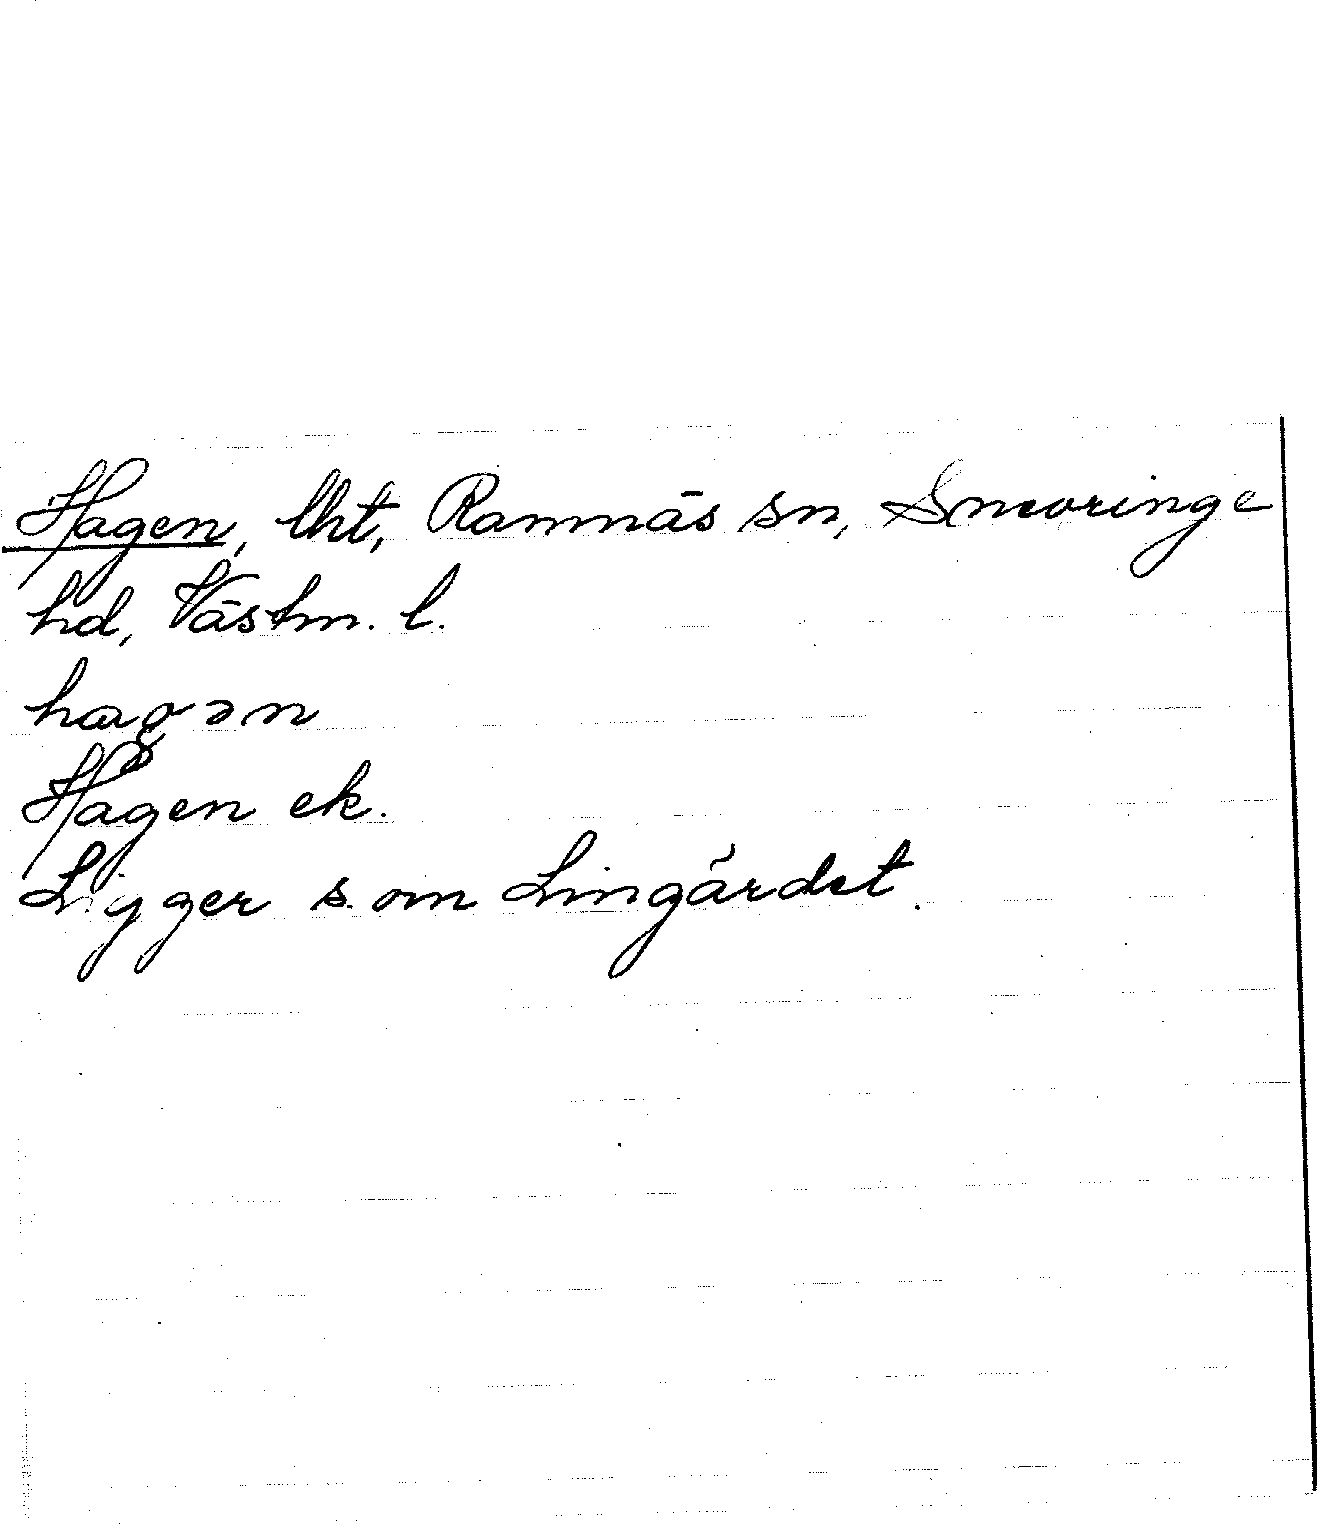 Hagen, lht, Ramnäs sn, Snevringe
hd, Västm. l.
hagən
Hagen ek.
Ligger s. om Lingärdet.